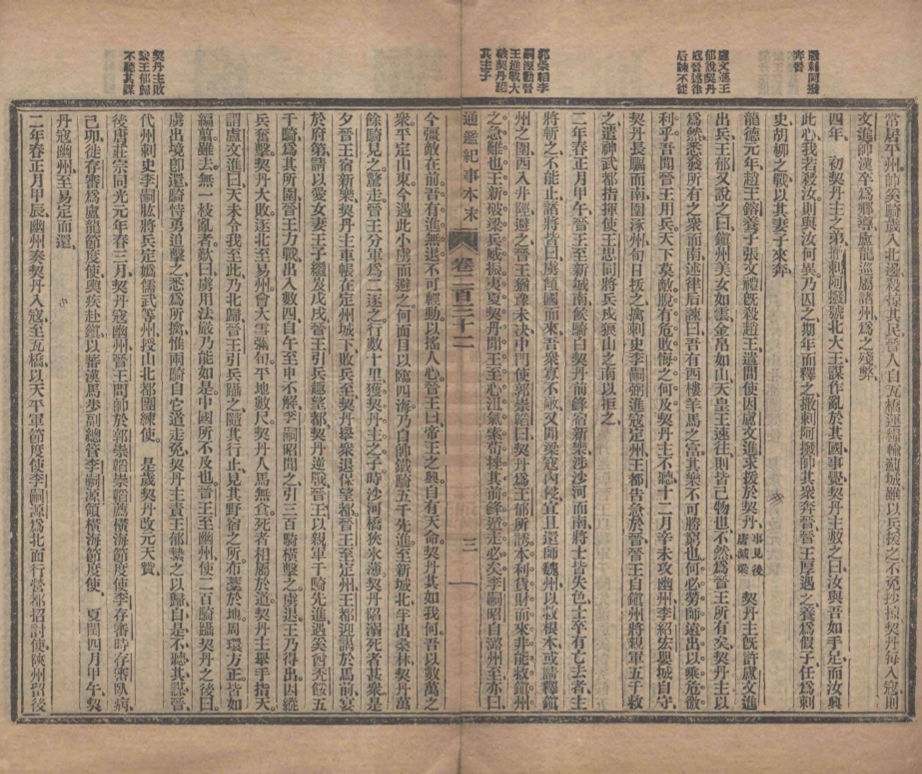 撒剌阿撥
奔晉
盧文進王
郁說契丹
寇晉述律
后諫不從
郭崇韜李
嗣昭勸晉
王進戰大
破契丹獲
其主子
契丹主敗
縶王郁歸
不聽其謀
當居平州帥奚騎歲入北邊殺掠吏民晉人自瓦橋運糧輸薊城雖以兵援之不免抄掠契丹每入寇則
文進帥漢卒爲鄉導盧龍巡屬諸州爲之殘弊
四年 初契丹主之弟撒剌阿撥號北大王謀作亂於其國事覺契丹主數之曰汝與吾如手足而汝興
此心我若殺汝則與汝何異乃囚之期年而釋之撒剌阿撥帥其衆奔晉晉王厚遇之養爲假子任爲刺
史胡柳之戰以其妻子來奔
龍德元年趙王鎔養子張文禮旣殺趙王遣間使因盧文進求援於契丹 事見後唐滅梁 契丹主旣許盧文進
出兵王郁又說之曰鎮州美女如雲金帛如山天皇王速往則皆己物也不然爲晉王所有矣契丹主以
爲然悉發所有之衆而南述律后諫曰吾有西樓羊馬之富其樂不可勝窮也何必勞師遠出以乘危徼
利乎吾聞晉王用兵天下莫敵脫有危敗悔之何及契丹主不聽十二月辛未攻幽州李紹宏嬰城自守
契丹長驅而南圍涿州旬日拔之擒刺史李嗣弼進寇定州王都告急於晉晉王自鎮州將親軍五千救
之遣神武都指揮使王思同將兵戍狼山之南以拒之
二年春正月甲午晉王至新城南候騎白契丹前鋒宿新樂涉沙河而南將士皆失色士卒有亡去者主
將斬之不能止諸將皆曰虜傾國而來吾衆寡不敵又聞梁寇內侵宜且還師魏州以救根本或請釋鎮
州之圍西入井陘避之晉王猶豫未決中門使郭崇韜曰契丹爲王郁所誘本利貨財而來非能救鎮州
之急難也王新破梁兵威振夷夏契丹聞王至心沮氣索苟挫其前鋒遁走必矣李嗣昭自潞州至亦曰
通鑑紀事本末 卷二百三十二 三
今彊敵在前吾有進無退不可輕動以搖人心晉王曰帝王之興自有天命契丹其如我何吾以數萬之
衆平定山東今遇此小虜而避之何面目以臨四海乃自帥鐵騎五千先進至新城北半出桑林契丹萬
餘騎見之驚走晉王分軍爲二逐之行數十里獲契丹主之子時沙河橋狹冰薄契丹陷溺死者甚衆是
夕晉王宿新樂契丹主車帳在定州城下敗兵至契丹舉衆退保望都晉王至定州王都迎謁於馬前宴
於府第請以愛女妻王子繼岌戊戌晉王引兵趣望都契丹逆戰晉王以親軍千騎先進遇奚酋禿餒五
千騎爲其所圍晉王力戰出入數四自午至申不解李嗣昭聞之引三百騎橫擊之虜退王乃得出因縱
兵奮擊契丹大敗逐北至易州會大雪彌旬平地數尺契丹人馬無食死者相屬於道契丹主舉手指天
謂盧文進曰天未令我至此乃北歸晉王引兵躡之隨其行止見其野宿之所布藁於地周環方正皆如
編翦雖去無一枝亂者歎曰虜用法嚴乃能如是中國所不及也晉王至幽州使二百騎躡契丹之後曰
虜出境卽還騎恃勇追擊之悉爲所擒惟兩騎自它道走免契丹主責王郁縶之以歸自是不聽其謀晉
代州刺史李嗣肱將兵定嬀儒武等州授山北都團練使 是歲契丹改元天贊
後唐莊宗同光元年春三月契丹寇幽州晉王問帥於郭崇韜崇韜薦橫海節度使李存審時存審臥病
己卯徙存審爲盧龍節度使輿疾赴鎮以蕃漢馬步副總管李嗣源領橫海節度使 夏閏四月甲午契
丹寇幽州至易定而還
二年春正月甲辰幽州奏契丹入寇至瓦橋以天平軍節度使李嗣源爲北面行營都招討使陝州留後